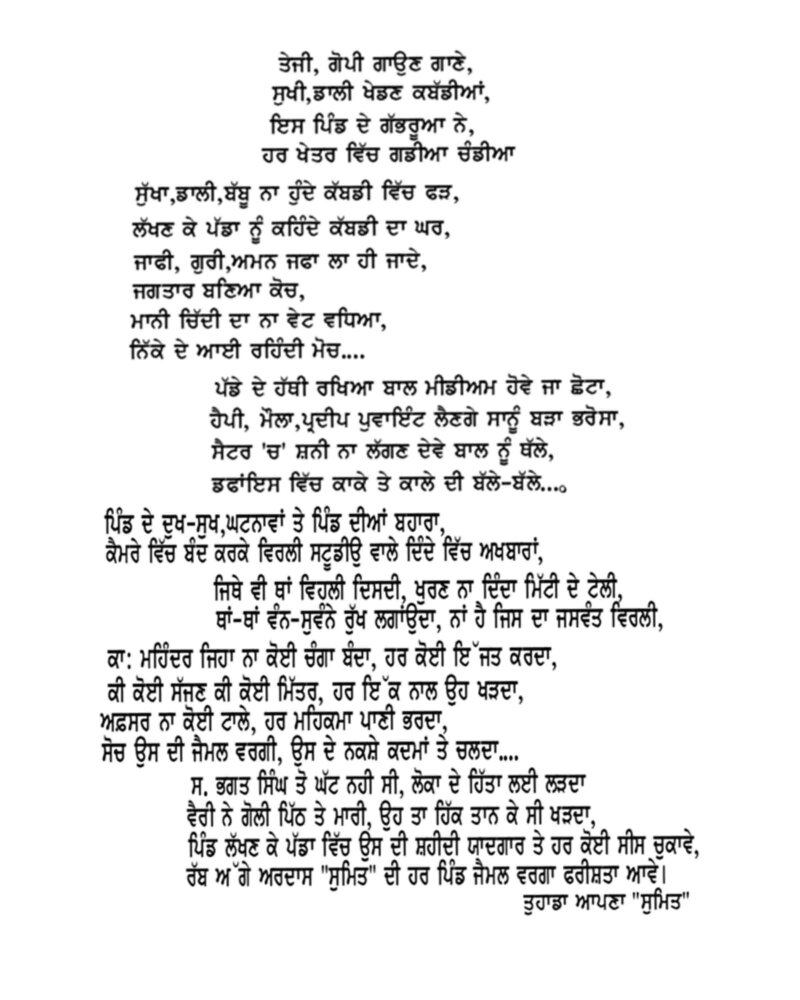 ਤੇਜੀ, ਗੋਪੀ ਗਾਉਣ ਗਾਣੇ,
ਸੁਖੀ,ਡਾਲੀ ਖੇਡਣ ਕਬੱਡੀਆਂ,
ਇਸ ਪਿੰਡ ਦੇ ਗੱਭਰੂਆ ਨੇ,
ਹਰ ਖੇਤਰ ਵਿੱਚ ਗਡੀਆ ਚੰਡੀਆ
ਸੁੱਖਾ,ਡਾਲੀ,ਬੱਬੂ ਨਾ ਹੁੰਦੇ ਕੱਬਡੀ ਵਿੱਚ ਫੜ,
ਲੱਖਣ ਕੇ ਪੱਡਾ ਨੂੰ ਕਹਿੰਦੇ ਕੱਬਡੀ ਦਾ ਘਰ,
ਜਾਫੀ, ਗੁਰੀ,ਅਮਨ ਜਫਾ ਲਾ ਹੀ ਜਾਦੇ,
ਜਗਤਾਰ ਬਣਿਆ ਕੋਚ,
ਮਾਨੀ ਚਿੱਦੀ ਦਾ ਨਾ ਵੇਟ ਵਧਿਆ,
ਨਿੱਕੇ ਦੇ ਆਈ ਰਹਿੰਦੀ ਮੋਚ....
ਪੱਡੇ ਦੇ ਹੱਥੀ ਰਖਿਆ ਬਾਲ ਮੀਡੀਅਮ ਹੋਵੇ ਜਾ ਛੋਟਾ,
ਹੈਪੀ, ਮੌਲਾ,ਪ੍ਰਦੀਪ ਪੁਵਾਇੰਟ ਲੈਣਗੇ ਸਾਨੂੰ ਬੜਾ ਭਰੋਸਾ,
ਸੈਟਰ 'ਚ' ਸ਼ਨੀ ਨਾ ਲੱਗਣ ਦੇਵੇ ਬਾਲ ਨੂੰ ਥੱਲੇ,
ਡਫਾਂਇਸ ਵਿੱਚ ਕਾਕੇ ਤੇ ਕਾਲੇ ਦੀ ਬੱਲੇ-ਬੱਲੇ...。
ਪਿੰਡ ਦੇ ਦੁਖ-ਸੁਖ,ਘਟਨਾਵਾਂ ਤੇ ਪਿੰਡ ਦੀਆਂ ਬਹਾਰਾ,
ਕੈਮਰੇ ਵਿੱਚ ਬੰਦ ਕਰਕੇ ਵਿਰਲੀ ਸਟੂਡੀਉ ਵਾਲੇ ਦਿੰਦੇ ਵਿੱਚ ਅਖਬਾਰਾਂ,
ਜਿਥੇ ਵੀ ਥਾਂ ਵਿਹਲੀ ਦਿਸਦੀ, ਖੁਰਣ ਨਾ ਦਿੰਦਾ ਮਿੱਟੀ ਦੇ ਟੇਲੀ,
ਥਾਂ-ਥਾਂ ਵੰਨ-ਸੁਵੰਨੇ ਰੁੱਖ ਲਗਾਂਉਦਾ, ਨਾਂ ਹੈ ਜਿਸ ਦਾ ਜਸਵੰਤ ਵਿਰਲੀ,
ਕਾ: ਮਹਿੰਦਰ ਜਿਹਾ ਨਾ ਕੋਈ ਚੰਗਾ ਬੰਦਾ, ਹਰ ਕੋਈ ਇੱਜਤ ਕਰਦਾ,
ਕੀ ਕੋਈ ਸੱਜਣ ਕੀ ਕੋਈ ਮਿੱਤਰ, ਹਰ ਇੱਕ ਨਾਲ ਉਹ ਖੜਦਾ,
ਅਫ਼ਸਰ ਨਾ ਕੋਈ ਟਾਲੇ, ਹਰ ਮਹਿਕਮਾ ਪਾਣੀ ਭਰਦਾ,
ਸੋਚ ਉਸ ਦੀ ਜੈਮਲ ਵਰਗੀ, ਉਸ ਦੇ ਨਕਸ਼ੇ ਕਦਮਾਂ ਤੇ ਚਲਦਾ....
ਸ. ਭਗਤ ਸਿੰਘ ਤੋ ਘੱਟ ਨਹੀ ਸੀ, ਲੋਕਾ ਦੇ ਹਿੱਤਾ ਲਈ ਲੜਦਾ
ਵੈਰੀ ਨੇ ਗੋਲੀ ਪਿੱਠ ਤੇ ਮਾਰੀ, ਉਹ ਤਾ ਹਿੱਕ ਤਾਨ ਕੇ ਸੀ ਖੜਦਾ,
ਪਿੰਡ ਲੱਖਣ ਕੇ ਪੱਡਾ ਵਿੱਚ ਉਸ ਦੀ ਸ਼ਹੀਦੀ ਯਾਦਗਾਰ ਤੇ ਹਰ ਕੋਈ ਸੀਸ ਚੁਕਾਵੇ,
ਰੱਬ ਅੱਗੇ ਅਰਦਾਸ "ਸੁਮਿਤ" ਦੀ ਹਰ ਪਿੰਡ ਜੈਮਲ ਵਰਗਾ ਫਰੀਸ਼ਤਾ ਆਵੇ।
ਤੁਹਾਡਾ ਆਪਣਾ "ਸੁਮਿਤ"